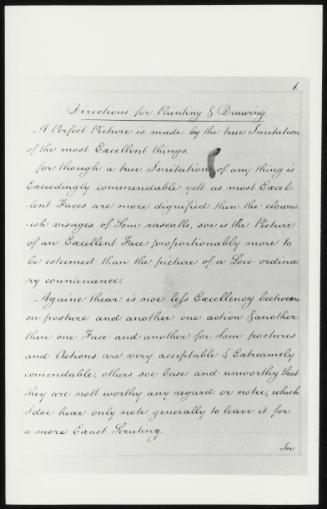 1.
Directions for Painting & Drawing
A Perfect Picture is made by the true Imitation
of the most Excellent things.
for though a true Imitation of any thing is
Exceedingly commendable yett as most Excel-
-lent Faces are more dignified then the clown
ish visages of Som rascalls, soe is the Picture
of an Excellent Face proportionably more to
be esteemed than the picture of a Low ordina
ry countenance:
Againe thear is noe less Excellency between
on posture and another one action & another
then one Face and another for Som postures
and Actions are very acceptable & Extreamely
comendable, others soe base and unworthy that
they are nott worthy any regard or notice; which
I doe hear only note generally to leave it for
a more Exact Scrutiny.
In